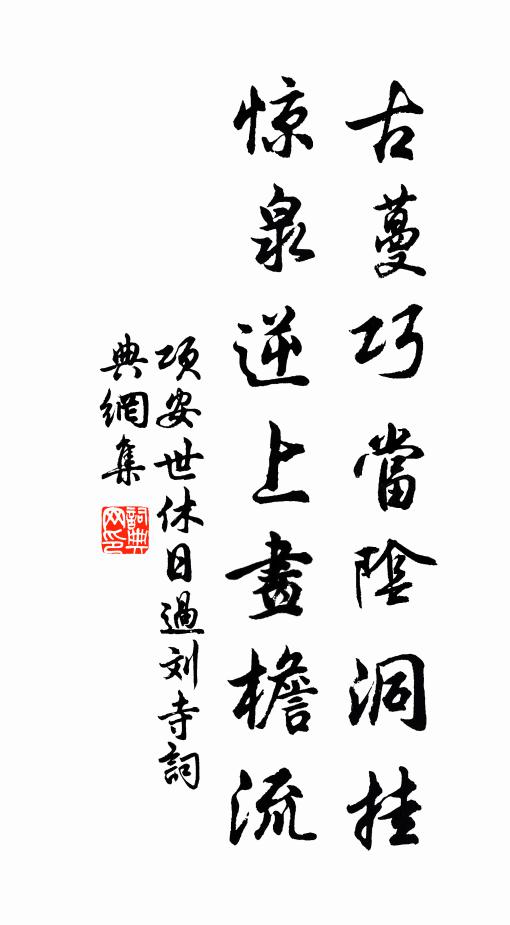 古蔓巧當陰洞挂
惊泉逆上畫檐流
项安世休日過刘寺詞
典網集
詞典网印